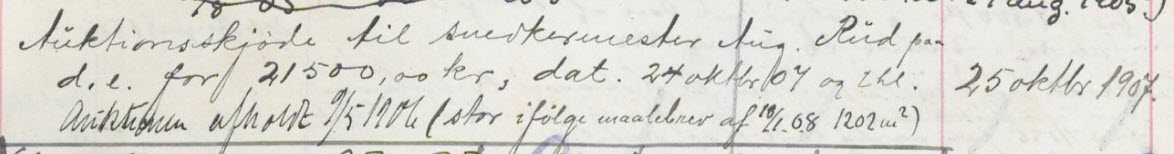 Auktionsskjøde til snedkermester Aug. Rüd paa
d. e. for 21500,00 kr, dat. 24 oktbr 07 og thl. 25 oktbr 1907.
Auktionen afholdt 9/5 1906 (stor ifølge maalebrev af 10/1.08 1202 m²)